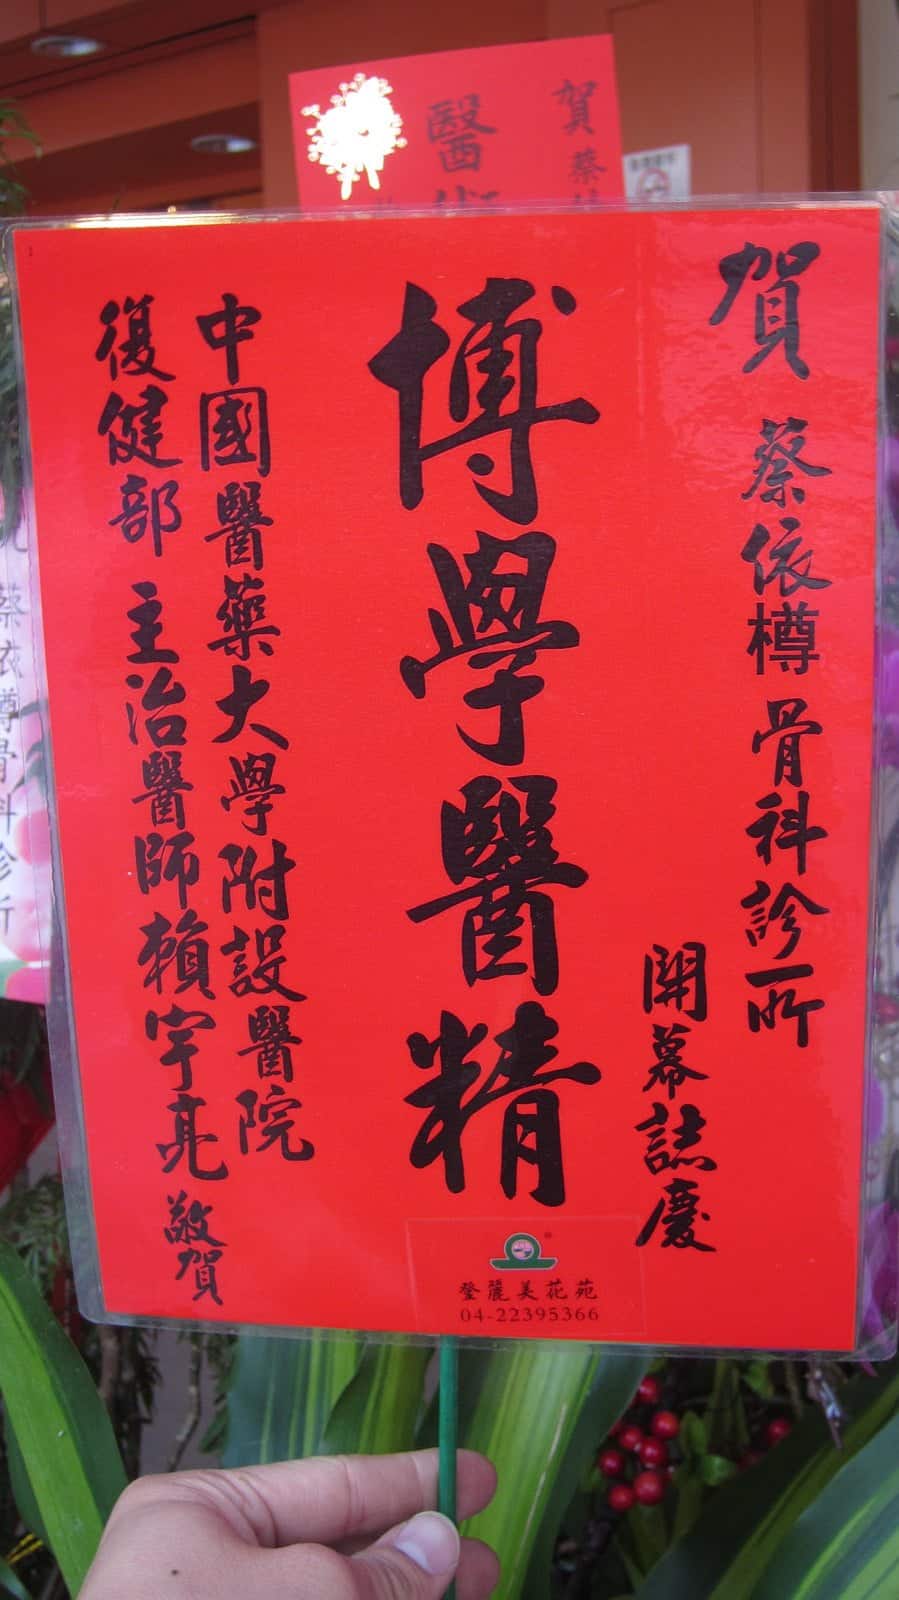 賀 蔡依樽骨科診所
開幕誌慶
博學醫精
中國醫藥大學附設醫院
復健部 主治醫師賴宇亮 敬賀
登麗美花苑
04-22395366
賀 蔡
醫術
蔡依樽骨科診所